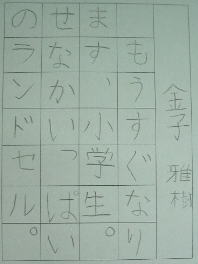 金子 雅樹
もうすぐなり
ます、小学生。
せなかいっぱい
のランドセル。